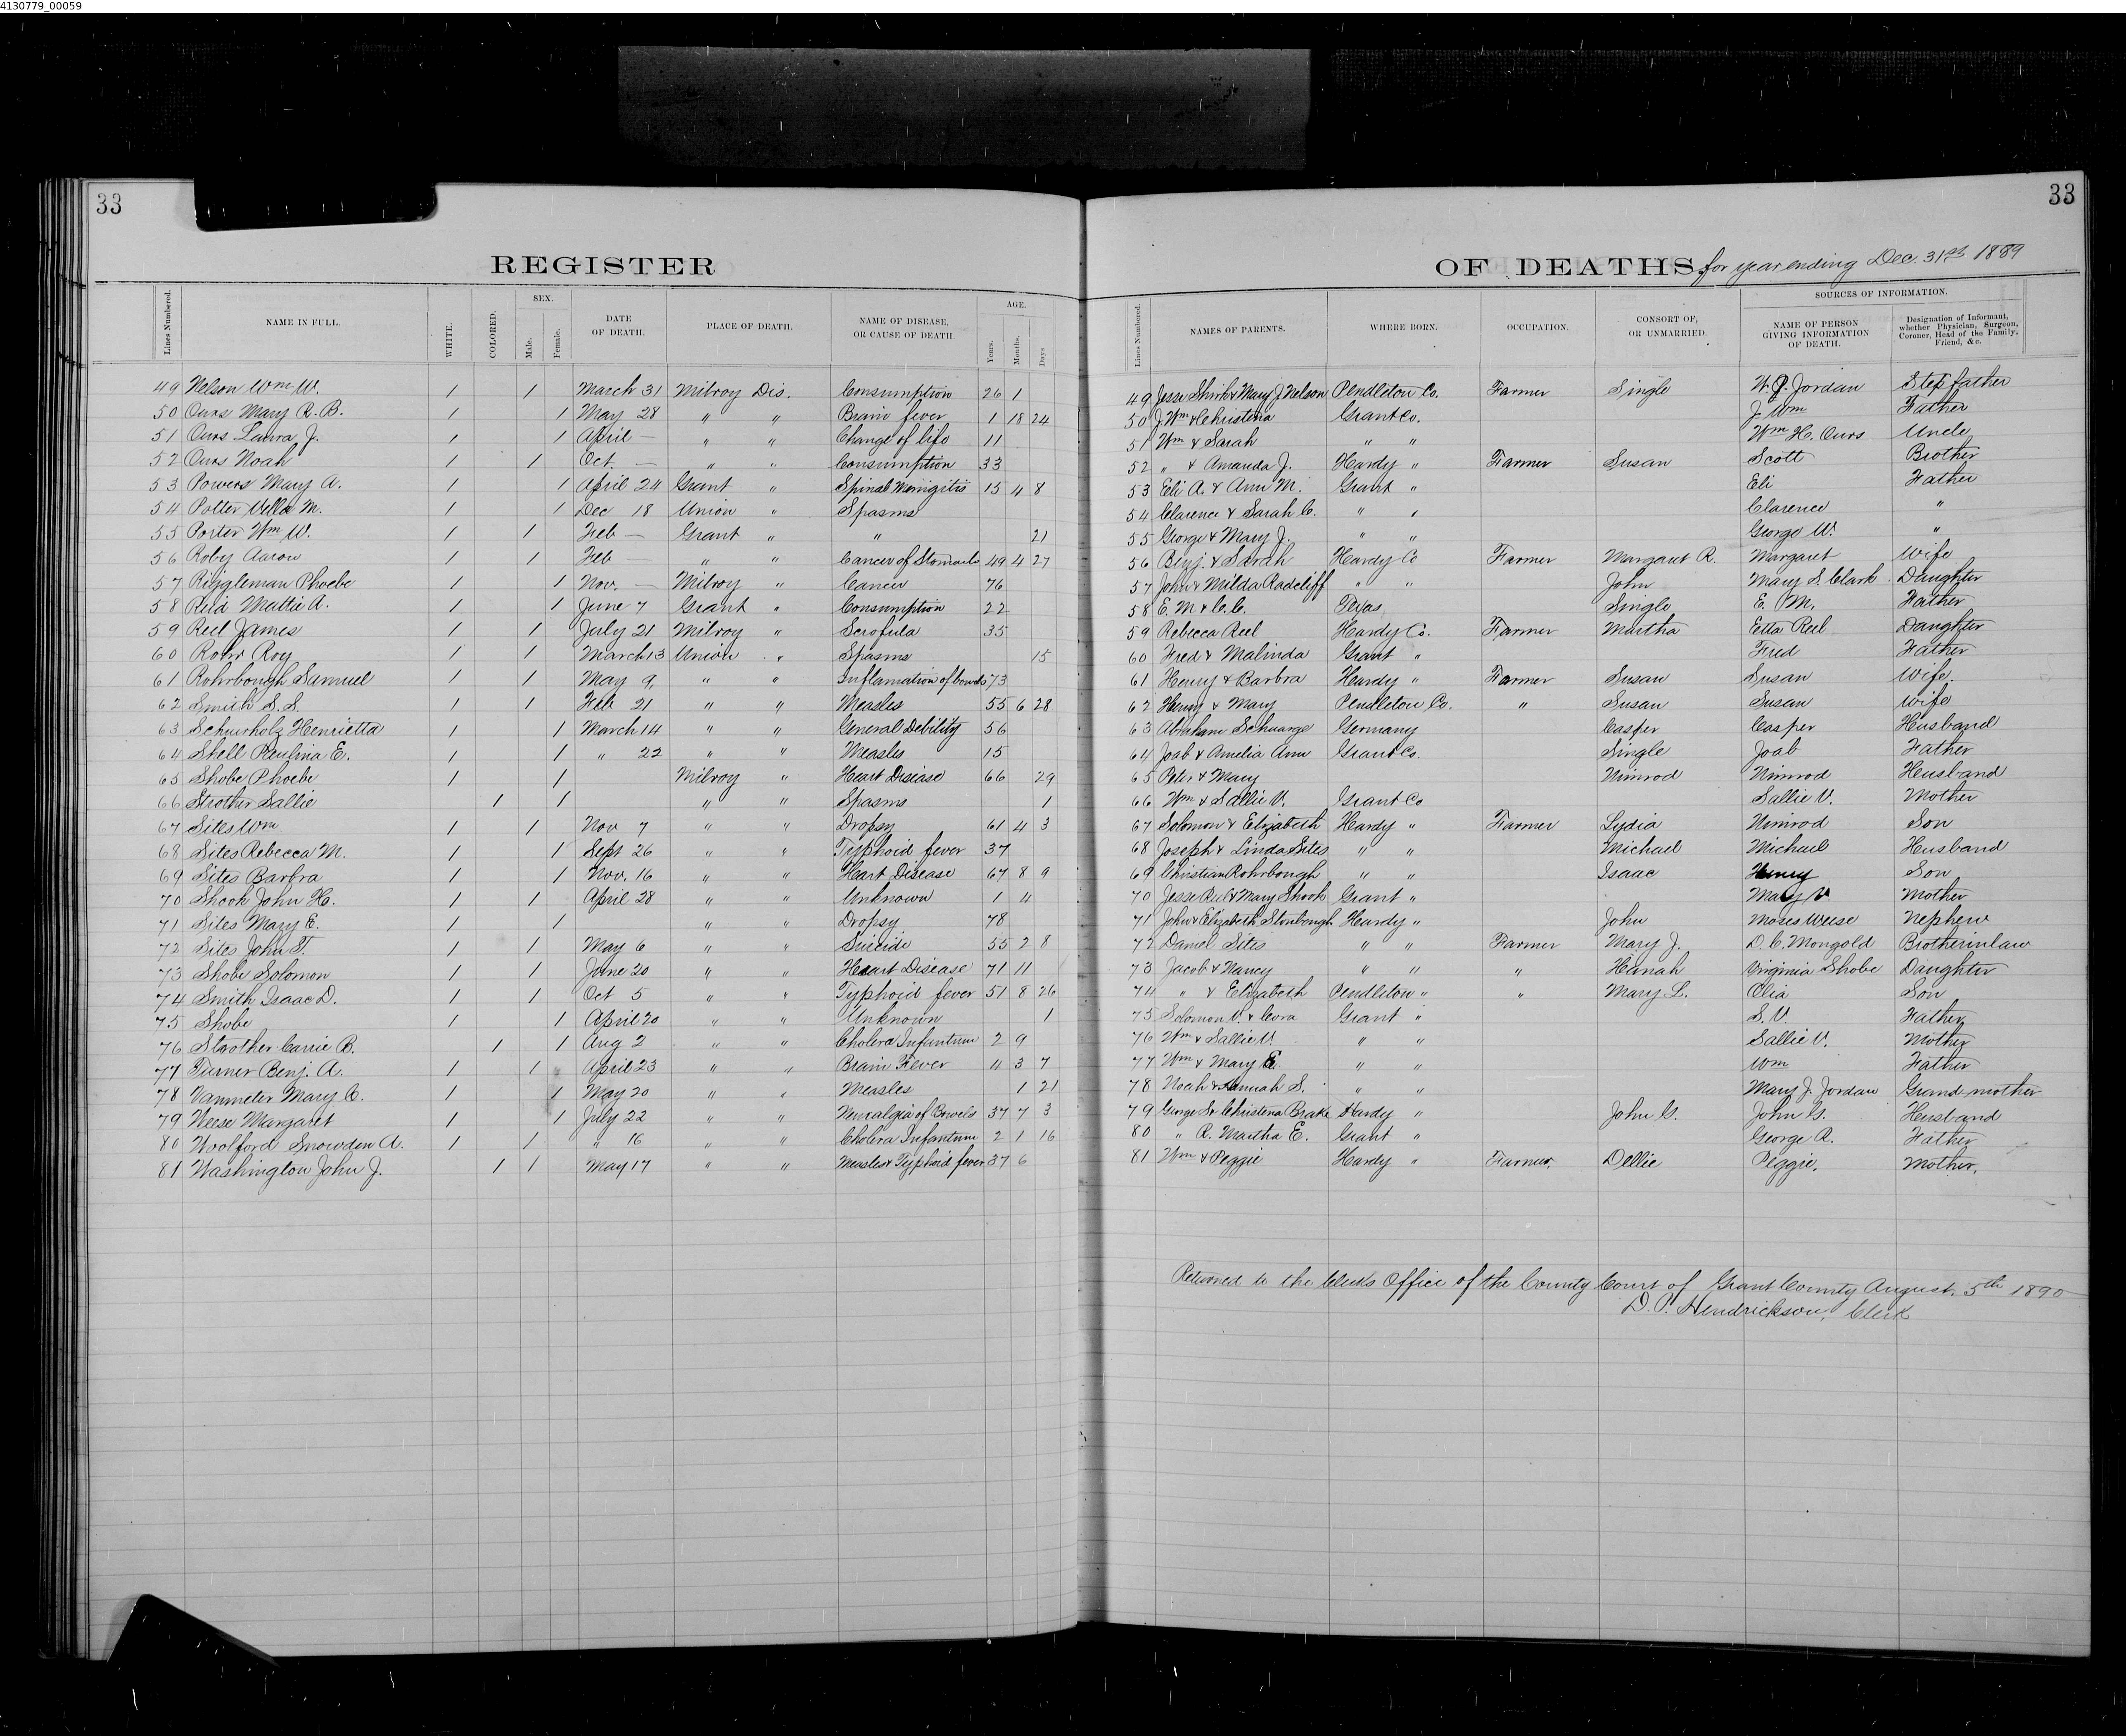 4130779_00059
33
33
REGISTER
OF DEATHS for year ending Dec. 31st 1889
Lines Numbered.
NAME IN FULL.
WHITE.
COLORED.
SEX.
Male.
Female.
DATE OF DEATH.
PLACE OF DEATH.
NAME OF DISEASE, OR CAUSE OF DEATH
AGE.
Years.
Months.
Days
Lines Numbered.
NAMES OF PARENTS.
WHERE BORN.
OCCUPATION.
CONSORT OF, OR UNMARRIED.
SOURCES OF INFORMATION.
NAME OF PERSON GIVING INFORMATION OF DEATH.
Designation of Informant, whether Physician, Surgeon, Coroner, Head of the Family, Friend, &c.
49 Nelson Wm W. 1 1 March 31 Milroy Dis. Consumption 26 1 49 Jesse Shirk & Mary J Nelson Pendleton Co. Farmer Single Jordan Step father
50 Ours Mary R. B. 1 1 May 28 " " Brain fever 1 18 24 50 J. Wm & Christena Grant Co. J. Wm Father
51 Ours Laura J. 1 1 April — " " Change of life 11 51 Wm & Sarah " " Wm H. Ours Uncle
52 Ours Noah 1 1 Oct. — " " Consumption 33 52 " & Amanda J. Hardy " Farmer Susan Scott Brother
53 Powers Mary A. 1 1 April 24 Grant " Spinal Menigitis 15 4 8 53 Eli A. & Ann M. Grant " Eli Father
54 Potter Vella M. 1 1 Dec 18 Union " Spasms 54 Clarence & Sarah C. " " Clarence "
55 Porter Wm W. 1 1 Feb — Grant " " 21 55 George & Mary J. " " George W. "
56 Roby Aaron 1 1 Feb — " " Cancer of Stomach 49 4 27 56 Binj. & Sarah Hardy Co Farmer Margaret R. Margaret Wife
57 Riggleman Phoebe 1 1 Nov. — Milroy " Cancer 76 57 John & Milda Radcliff " " John Mary S. Clark Daughter
58 Reid Mattie A. 1 1 June 7 Grant " Consumption 22 58 E. M & C. C. Texas Single E. M. Father
59 Reel James 1 1 July 21 Milroy " Scrofula 35 59 Rebecca Reel Hardy Co. Farmer Martha Etta Reel Daughter
60 Rohr Roy 1 1 March 13 Union " Spasms 15 60 Fred & Malinda Grant " Fred Father
61 Rohrbough Samuel 1 1 May 9, " " Inflamation of bowels 73 61 Henry & Barbra Hardy " Farmer Susan Susan Wife.
62 Smith S. S. 1 1 Feb 21 " " Measles 55 6 28 62 Henry & Mary Pendleton Co. " Susan Susan Wife
63 Schurholz Henrietta 1 1 March 14 " " General Debility 56 63 Abraham Schwarge Germany Casper Casper Husband
64 Shell Paulina E. 1 1 " 22 " " Measles 15 64 Joab & Amelia Ann Grant Co. Single Joab Father
65 Shobe Phoebe 1 1 Milroy " Heart Disease 66 29 65 Peter & Mary Nimrod Nimrod Husband
66 Strother Sallie 1 1 " " Spasms 1 66 Wm & Sallie V. Grant Co Sallie V. Mother
67 Sites Wm 1 1 Nov 7 " " Dropsy 61 4 3 67 Solomon & Elizabeth Hardy " Farmer Lydia Nimrod Son
68 Sites Rebecca M. 1 1 Sept 26 " " Typhoid fever 37 68 Joseph & Linda Sites " " Michael Michael Husband
69 Sites Barbra 1 1 Nov. 16 " " Heart Disease 67 8 9 69 Christian Rohrbough " " Isaac Henry Son
70 Shook John H. 1 1 April 28 " " Unknown 1 4 70 Jesse Reel & Mary Shook Grant " Mary V Mother
71 Sites Mary E. 1 1 " " Dropsy 78 71 John & Elizabeth Stonbough Hardy " John Moses Weese Nephew
72 Sites John T. 1 1 May 6 " " Suicide 55 2 8 72 Daniel Sites " " Farmer Mary J. D. C. Mongold Brotherinlaw
73 Shobe Solomon 1 1 June 20 " " Heart Disease 71 11 73 Jacob & Nancy " " " Hanah Virginia Shobe Daughter
74 Smith Isaac D. 1 1 Oct 5 " " Typhoid fever 51 8 26 74 " & Elizabeth Pendleton " " Mary L. Olia Son
75 Shobe 1 1 April 20 " " Unknown 1 75 Solomon V. & Cora Grant " S. V. Father
76 Strother Carrie B. 1 1 Aug 2 " " Cholera Infantum 2 9 76 Wm & Sallie V. " " Sallie V. Mother
77 Turner Benj. A. 1 1 April 23 " " Brain Fever 11 3 7 77 Wm & Mary E. " " Wm Father
78 Vanmeter Mary C. 1 1 May 20 " " Measles 1 21 78 Noah & Hannah S. " " Mary J. Jordan Grand mother
79 Weese Margaret 1 1 July 22 " " Neuralgia of Bowels 37 7 3 79 George Sr Christena Brake Hardy " John G. John G. Husband
80 Woolford Snowden A. 1 1 " 16 " " Cholera Infantum 2 1 16 80 " R. Martha E. Grant " George R. Father
81 Washington John J. 1 1 May 17 " " Measles & Typhoid fever 37 6 81 Wm & Peggie Hardy " Farmer. Dellie Peggie. Mother.
Returned to the Clerks Office of the County Court of Grant County August 5th 1890
D. P. Hendrickson, Clerk